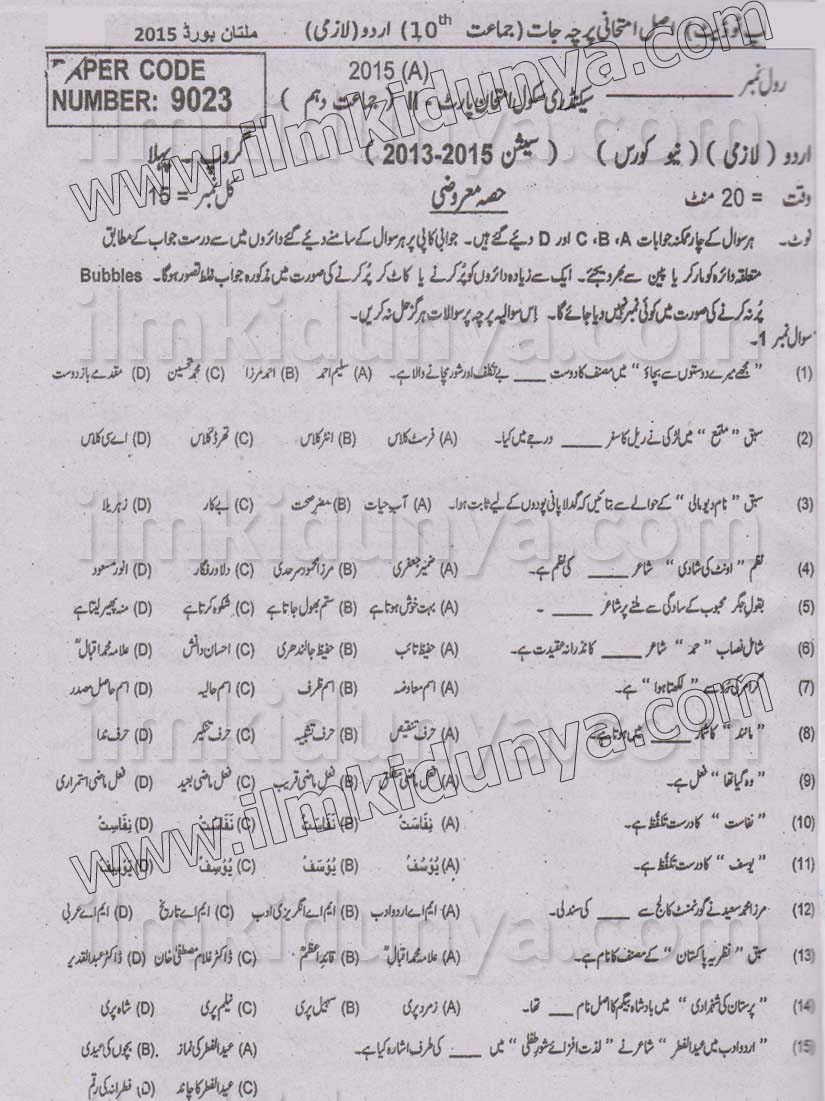 اپ ٹو ڈیٹ) اصل امتحانی پرچہ جات (جماعت 10th) اردو (لازمی) ملتان بورڈ 2015
PAPER CODE
NUMBER: 9023
2015 (A)
رول نمبر
سیکنڈری سکول امتحان پارٹ - II (جماعت دہم)
اردو (لازمی) (نیو کورس) (سیشن 2015-2013) گروپ - پہلا
وقت = 20 منٹ حصہ معروضی کل نمبر = 15
نوٹ۔ ہر سوال کے چار ممکنہ جوابات A، B، C اور D دیئے گئے ہیں۔ جوابی کاپی پر ہر سوال کے سامنے دیئے گئے دائروں میں سے درست جواب کے مطابق
متعلقہ دائرہ کو مارکر یا پین سے بھر دیجئے۔ ایک سے زیادہ دائروں کو پُر کرنے یا کاٹ کر پُر کرنے کی صورت میں مذکورہ جواب غلط تصور ہوگا۔ Bubbles
پُر نہ کرنے کی صورت میں کوئی نمبر نہیں دیا جائے گا۔ اِس سوالیہ پرچہ پر سوالات ہرگز حل نہ کریں۔
سوال نمبر 1۔
(1) ”مجھے میرے دوستوں سے بچاؤ“ میں مصنف کا دوست ____ بے تکلف اور شور مچانے والا ہے۔ (A) سلیم احمد (B) احمد مرزا (C) محمد تحسین (D) مقدمے باز دوست
(2) سبق ”ملمع“ میں لڑکی نے ریل کا سفر ____ درجے میں کیا۔ (A) فرسٹ کلاس (B) انٹر کلاس (C) تھرڈ کلاس (D) اے سی کلاس
(3) سبق ”نام دیو مالی“ کے حوالے سے بتائیں کہ گدلا پانی پودوں کے لیے ثابت ہوا۔ (A) آب حیات (B) مضر صحت (C) بے کار (D) زہریلا
(4) نظم ”اونٹ کی شادی“ شاعر ____ کی نظم ہے۔ (A) ضمیر جعفری (B) مرزا محمود سرحدی (C) دلاور فگار (D) انور مسعود
(5) بقول جگر محبوب کے سادگی سے ملنے پر شاعر ____ ۔ (A) بہت خوش ہوتا ہے (B) ستم بھول جاتا ہے (C) شکوہ کرتا ہے (D) منہ پھیر لیتا ہے
(6) شامل نصاب ”حمد“ شاعر ____ کا نذرانہ عقیدت ہے۔ (A) حفیظ تائب (B) حفیظ جالندھری (C) احسان دانش (D) علامہ محمد اقبالؒ
(7) گرامر کی رُو سے ”لکھتا ہوا“ ہے۔ (A) اسم معاوضہ (B) اسم ظرف (C) اسم حالیہ (D) اسم حاصل مصدر
(8) ”مانند“ کا شمار ____ میں ہوتا ہے۔ (A) حرف تنقیص (B) حرف تشبیہ (C) حرف تنکیر (D) حرف ندا
(9) ”وہ گیا تھا“ فعل ہے۔ (A) فعل ماضی مطلق (B) فعل ماضی قریب (C) فعل ماضی بعید (D) فعل ماضی استمراری
(10) ”نفاست“ کا درست تلفظ ہے۔ (A) نِفَاسَتْ (B) (C) نَفَاسَتْ (D) نِفَاسِتْ
(11) ”یوسف“ کا درست تلفظ ہے۔ (A) یُوْسُفْ (B) یُوْسَفْ (C) یُوْسِفْ (D)
(12) مرزا محمد سعید نے گورنمنٹ کالج سے ____ کی سند لی۔ (A) ایم اے اردو ادب (B) ایم اے انگریزی ادب (C) ایم اے تاریخ (D) ایم اے عربی
(13) سبق ”نظریہ پاکستان“ کے مصنف کا نام ہے۔ (A) علامہ محمد اقبالؒ (B) قائد اعظمؒ (C) ڈاکٹر غلام مصطفیٰ خان (D) ڈاکٹر عبدالقدیر
(14) ”پرستان کی شہزادی“ میں بادشاہ بیگم کا اصل نام ____ تھا۔ (A) زمرد پری (B) سہیل پری (C) نیلم پری (D) شاہ پری
(15) ”اردو ادب میں عید الفطر“ شاعر نے ”لذت افزائے شور طفلی“ میں ____ کی طرف اشارہ کیا ہے۔ (A) عید الفطر کی نماز (B) بچوں کی عیدی
(C) عید الفطر کا چاند (D) فطرانہ کی رقم
www.ilmkidunya.com
www.ilmkidunya.com
ilmkidunya.com
ilmkidunya.com
ilmkidunya.com
ilmkidunya.com
ilmkidunya.com